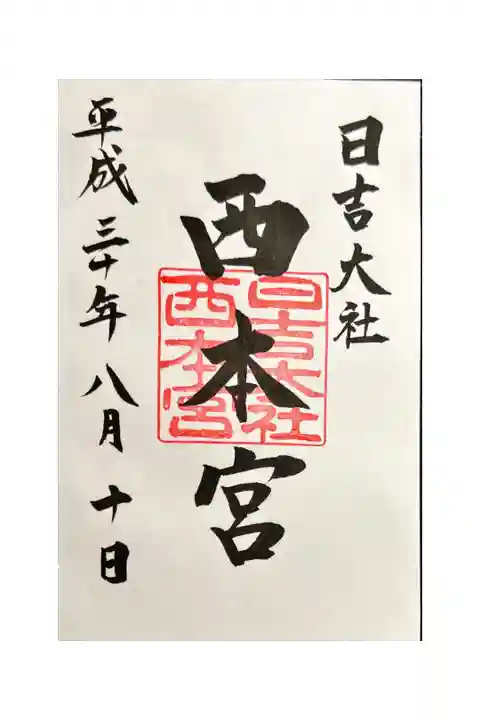 日吉大社
西本宮
日吉大社
西本宮
平成三十年八月十日